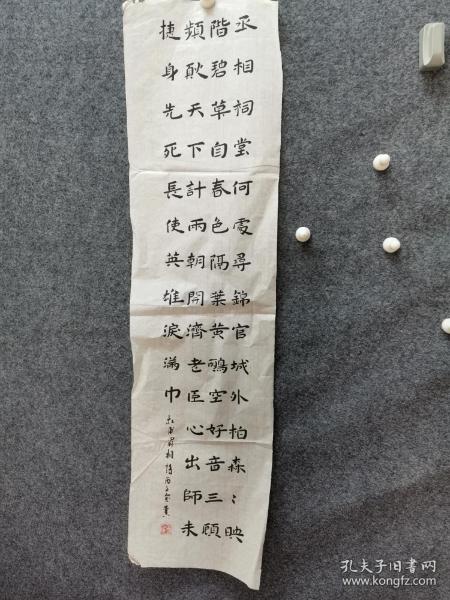 丞相祠堂何處尋錦官城外柏森〻映
階碧草自春色隔葉黃鸝空好音三顧
頻天下計兩朝開濟老臣心出師未
捷身先死長使英雄淚滿巾
孔夫子旧书网
www.kongfz.com